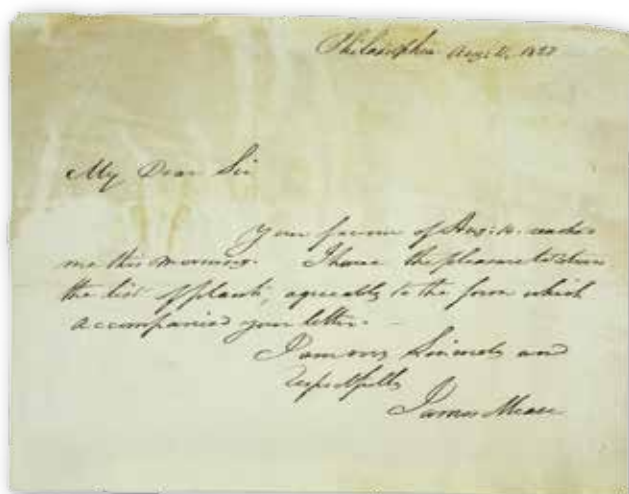 Philadelphia Aug: 11, 1827
My Dear Sir
Your favour of Aug: 10. reached
me this morning. I have the pleasure to return
the list of plants, agreeably to the form which
accompanied your letter.
I am very Sincerely and
respectfully
James Mease